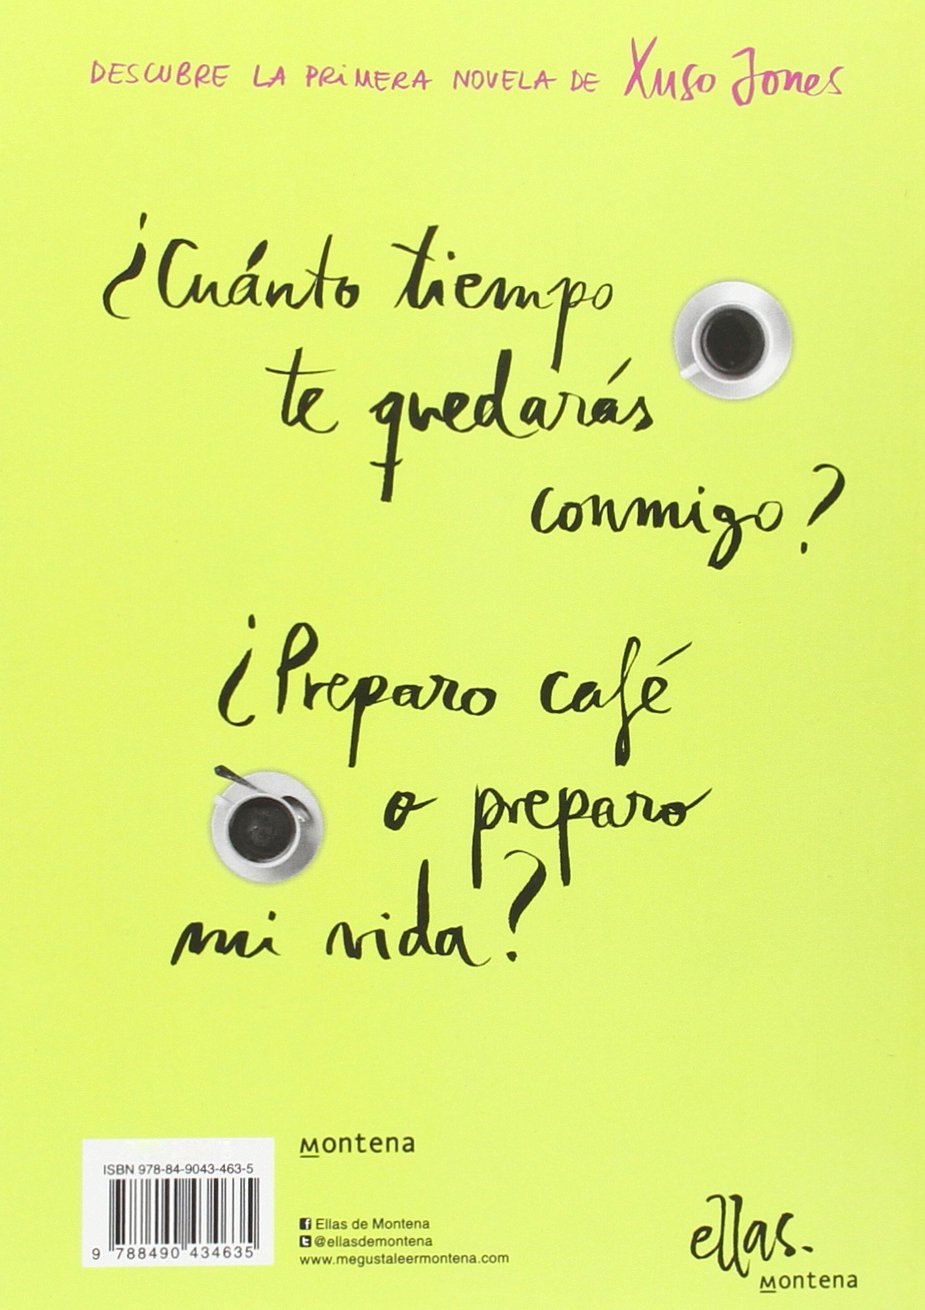 DESCUBRE LA PRIMERA NOVELA DE Xuso Jones
¿Cuánto tiempo
te quedarás
conmigo?
¿Preparo café
o preparo
mi vida?
montena
ISBN 978-84-9043-463-5
9 788490 434635
Ellas de Montena
@ellasdemontena
www.megustaleermontena.com
ellas.
montena